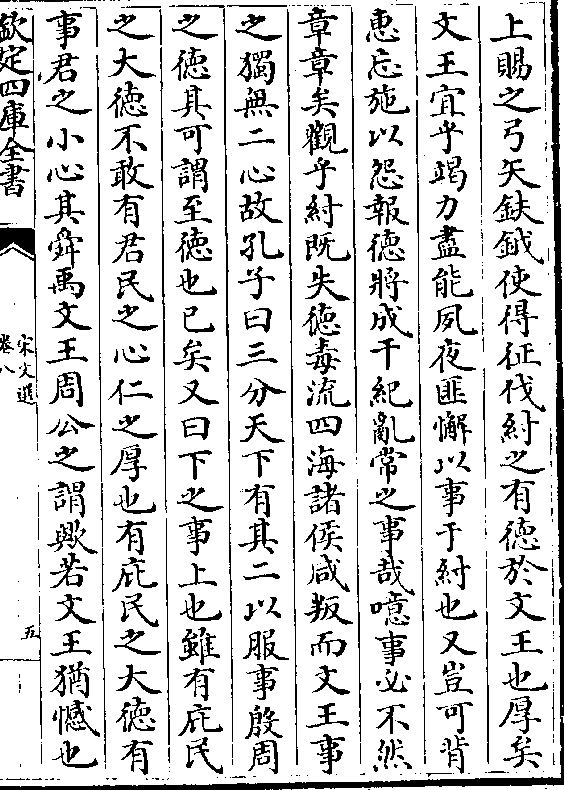 上賜之弓矢鈇鉞使得征伐紂之有徳於文王也厚矣
文王宜乎竭力盡能夙夜匪懈以事于紂也又豈可背
惠忘施以怨報徳將成干紀亂常之事哉噫事必不然
章章矣觀乎紂既失徳毒流四海諸侯咸叛而文王事
之獨無二心故孔子曰三分天下有其二以服事殷周
之徳其可謂至徳也已矣又曰下之事上也雖有庇民
之大徳不敢有君民之心仁之厚也有庇民之大徳有
事君之小心其舜禹文王周公之謂歟若文王猶憾也
欽定四庫全書
宋文選
卷八
五